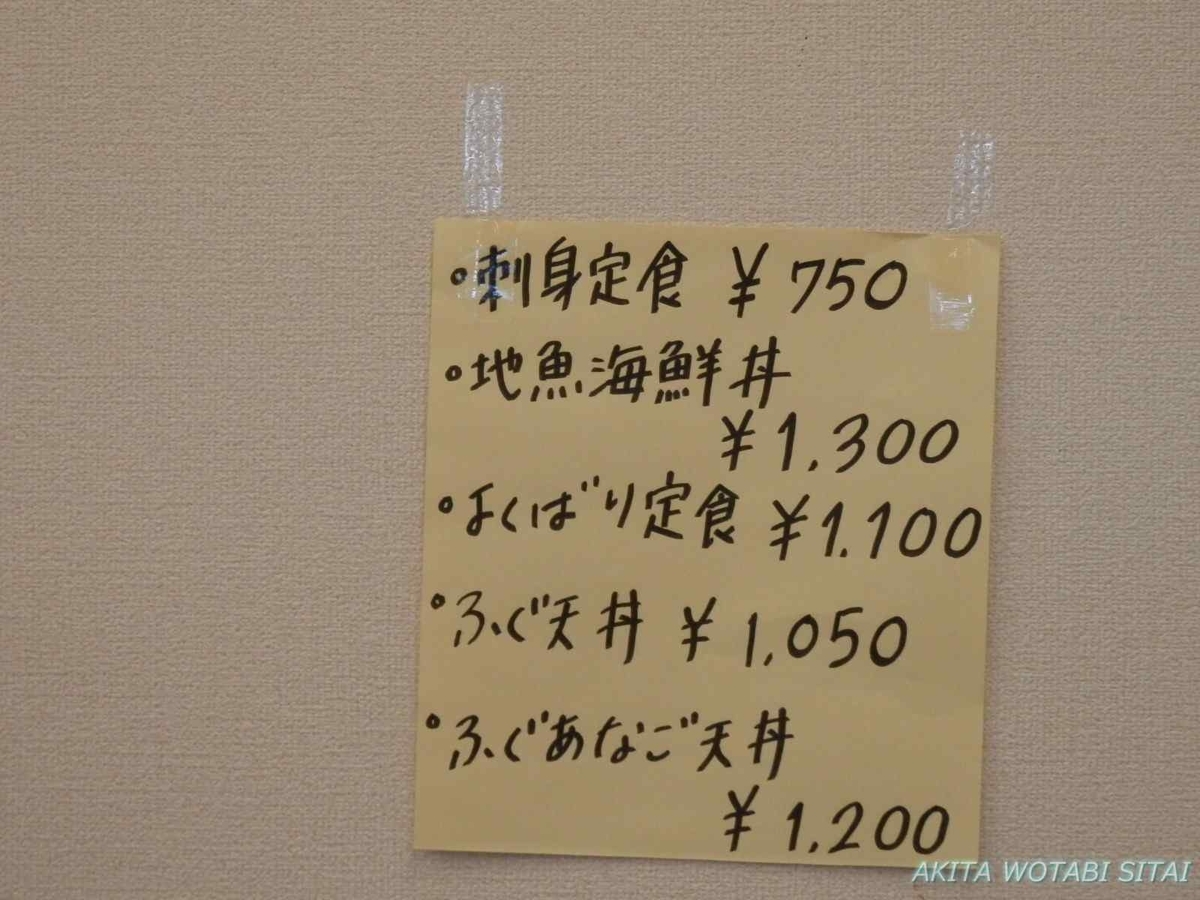 ・刺身定食 ¥750
・地魚海鮮丼
¥1,300
・よくばり定食 ¥1,100
・ふぐ天丼 ¥1,050
・ふぐあなご天丼
¥1,200
AKITA WOTABI SITAI